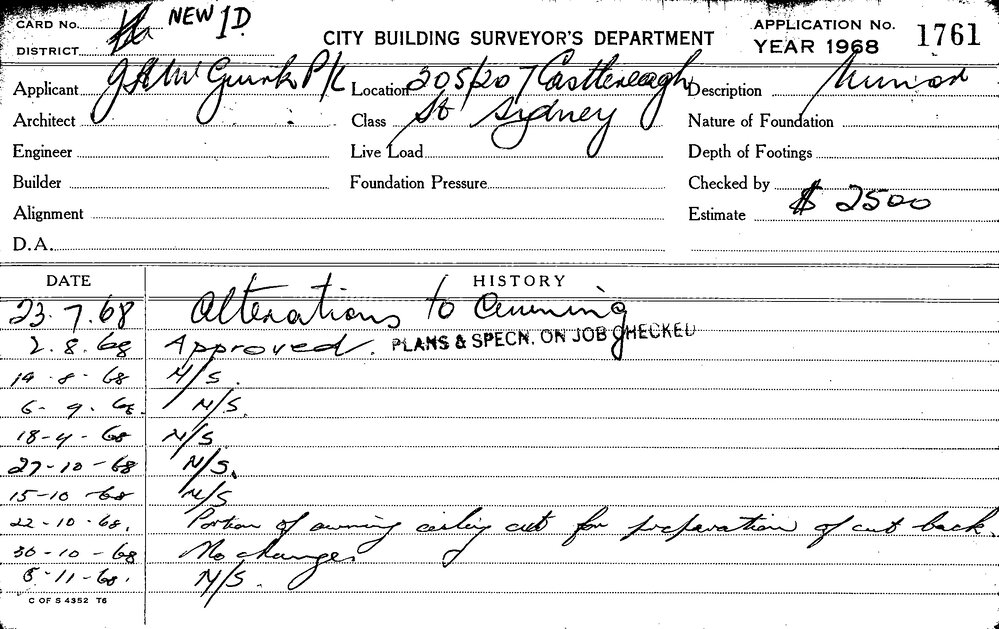 CARD No. NEW 1D.
DISTRICT
CITY BUILDING SURVEYOR'S DEPARTMENT
APPLICATION No. 1761
YEAR 1968
Applicant P/L Location 205/207 Castlereagh Description Minor
Architect Class St Sydney Nature of Foundation
Engineer Live Load Depth of Footings
Builder Foundation Pressure Checked by
Alignment Estimate $ 2500
D.A.
DATE HISTORY
23.7.68 Alterations to Awning
2.8.68 Approved. PLANS & SPECN. ON JOB CHECKED
19-8-68 N/S.
6-9-68. N/S.
18-9-68 N/S
27-10-68 N/S.
15-10-68 N/S
22-10-68. Portion of awning ceiling cut for preparation of cut back.
30-10-68 No changes
5-11-68. N/S.
C OF S 4352 T6